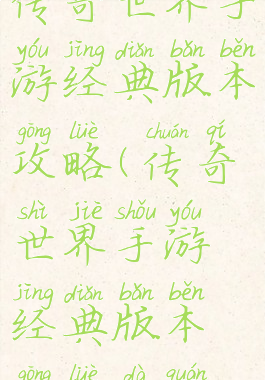 传奇世界手
yóu jīng diǎn bǎn běn
游经典版本
gōng lüè chuán qí
攻略(传奇
shì jiè shǒu yóu
世界手游
jīng diǎn bǎn běn
经典版本
gōng lüè dà quán